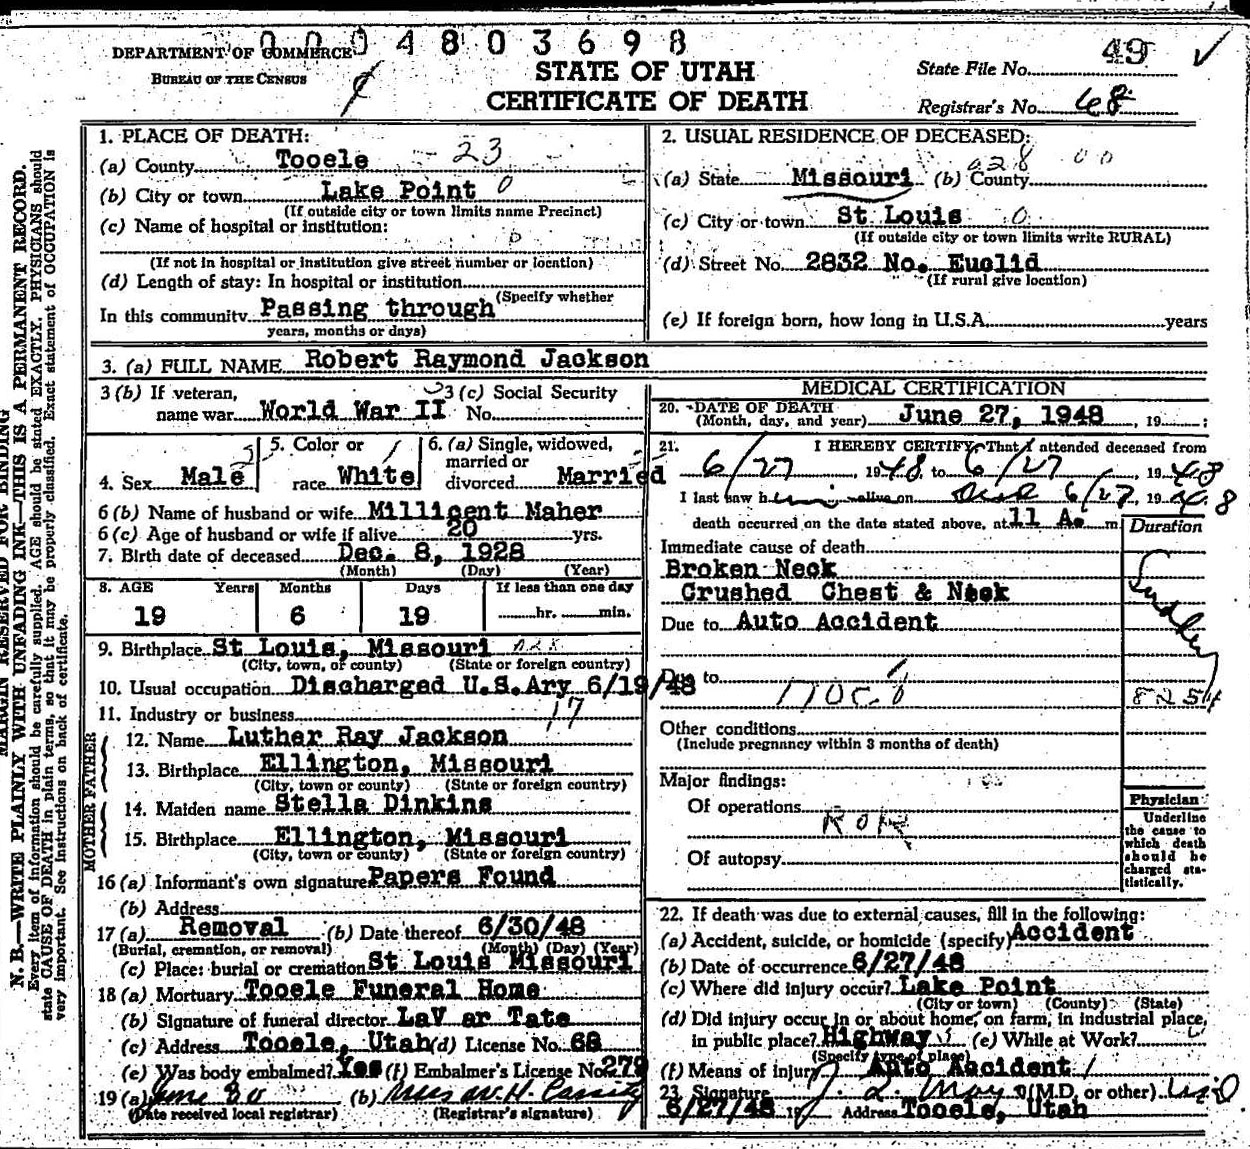 0004803698
DEPARTMENT OF COMMERCE
BUREAU OF THE CENSUS
STATE OF UTAH
CERTIFICATE OF DEATH
State File No. 49
Registrar's No. 68
MARGIN RESERVED FOR BINDING
N. B.—WRITE PLAINLY WITH UNFADING INK—THIS IS A PERMANENT RECORD.
Every item of information should be carefully supplied. AGE should be stated EXACTLY. PHYSICIANS should
state CAUSE OF DEATH in plain terms, so that it may be properly classified. Exact statement of OCCUPATION is
very important. See instructions on back of certificate.
1. PLACE OF DEATH:
(a) County Tooele 23
(b) City or town Lake Point 0
(If outside city or town limits name Precinct)
(c) Name of hospital or institution:
(If not in hospital or institution give street number or location)
(d) Length of stay: In hospital or institution
(Specify whether
In this community Passing through
years, months or days)
2. USUAL RESIDENCE OF DECEASED:
028 00
(a) State Missouri (b) County
(c) City or town St Louis 0
(If outside city or town limits write RURAL)
(d) Street No. 2832 No. Euclid
(If rural give location)
(e) If foreign born, how long in U.S.A. years
3. (a) FULL NAME Robert Raymond Jackson
3 (b) If veteran, name war World War II
3 (c) Social Security No.
4. Sex Male
5. Color or race White
6. (a) Single, widowed, married or divorced Married
6 (b) Name of husband or wife Millicent Maher
6 (c) Age of husband or wife if alive 20 yrs.
7. Birth date of deceased Dec. 8, 1928
(Month) (Day) (Year)
8. AGE Years Months Days If less than one day
19 6 19 hr. min.
9. Birthplace St Louis, Missouri 028
(City, town, or county) (State or foreign country)
10. Usual occupation Discharged U.S.Ary 6/19/48
11. Industry or business 17
FATHER
12. Name Luther Ray Jackson
13. Birthplace Ellington, Missouri
(City, town or county) (State or foreign country)
MOTHER
14. Maiden name Stella Dinkins
15. Birthplace Ellington, Missouri
(City, town or county) (State or foreign country)
16 (a) Informant's own signature Papers Found
(b) Address
17 (a) Removal (b) Date thereof 6/30/48
(Burial, cremation, or removal) (Month) (Day) (Year)
(c) Place: burial or cremation St Louis Missouri
18 (a) Mortuary Tooele Funeral Home
(b) Signature of funeral director LaV ar Tate
(c) Address Tooele, Utah (d) License No. 68
(e) Was body embalmed? Yes (f) Embalmer's License No. 279
19 (a) June 30 (b) Mrs W. H. Cassity
(Date received local registrar) (Registrar's signature)
MEDICAL CERTIFICATION
20. DATE OF DEATH
(Month, day, and year) June 27, 1948, 19 ;
21. I HEREBY CERTIFY, That I attended deceased from
6/27, 1948 to 6/27, 1948
I last saw him alive on Dead 6/27, 1948
death occurred on the date stated above, at 11 A. m.
Duration
Immediate cause of death
Broken Neck
Crushed Chest & Neck
Due to Auto Accident
Due to
170c
8254
Other conditions
(Include pregnancy within 3 months of death)
Major findings:
Of operations
Of autopsy
Physician
Underline
the cause to
which death
should be
charged sta-
tistically.
22. If death was due to external causes, fill in the following:
(a) Accident, suicide, or homicide (specify) Accident
(b) Date of occurrence 6/27/48
(c) Where did injury occur? Lake Point
(City or town) (County) (State)
(d) Did injury occur in or about home, on farm, in industrial place,
in public place? Highway (e) While at Work?
(Specify type of place)
(f) Means of injury Auto Accident
23. Signature (M.D. or other)
6/27/48 19 Address Tooele, Utah